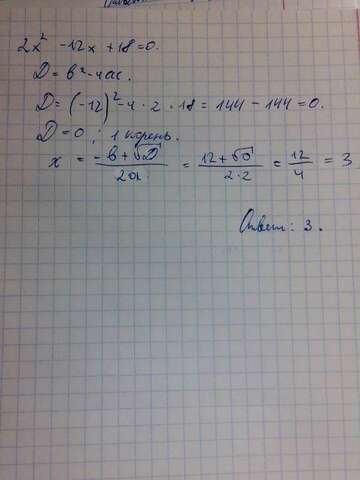 2x² - 12x + 18 = 0.
D = b² - 4ac.
D = (-12)² - 4 · 2 · 18 = 144 - 144 = 0.
D = 0; 1 корень.
x = (-b + √D) / 2a = (12 + √0) / 2·2 = 12/4 = 3
Ответ: 3.